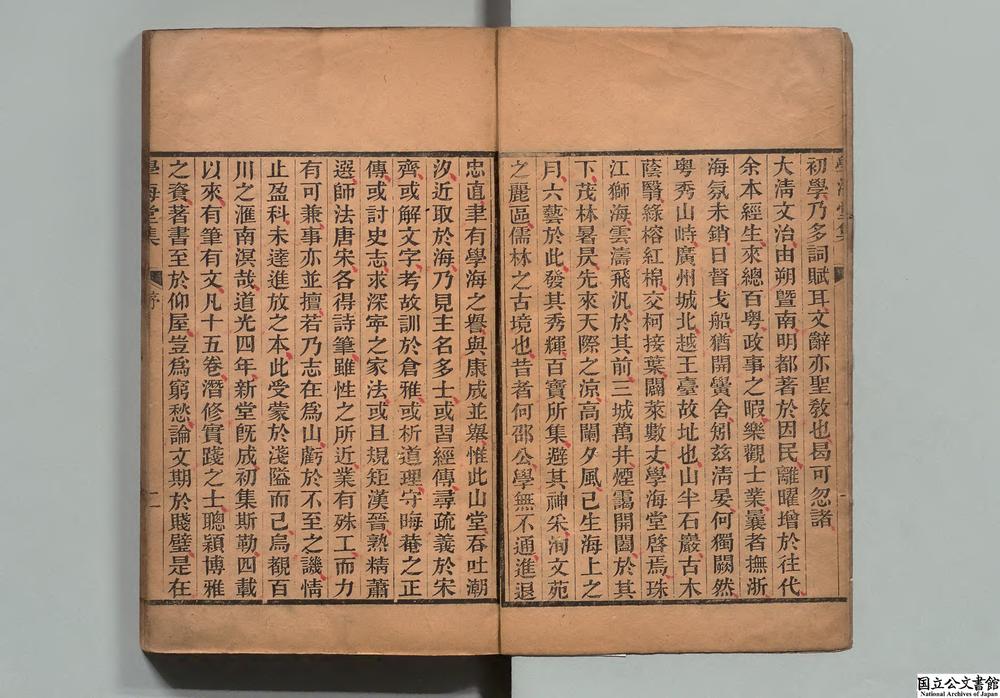 初學乃多詞賦耳文辭亦聖教也曷可忽諸
大清文治由朔曁南明都著於因民離曜增於往代
余本經生來總百粤政事之暇樂觀士業曩者撫浙
海氛未銷日督戈船猶開黌舍矧兹清晏何獨闕然
粤秀山峙廣州城北越王臺故址也山半石巖古木
蔭翳綠榕紅棉交柯接葉闢萊數丈學海堂啓焉珠
江獅海雲濤飛汎於其前三城萬井煙靄開闔於其
下茂林暑昃先來天際之涼高闌夕風已生海上之
月六藝於此發其秀輝百寳所集避其神采洵文苑
之麗區儒林之古境也昔者何邵公學無不通進退
忠直聿有學海之譽與康成並舉惟此山堂吞吐潮
汐近取於海乃見主名多士或習經傳尋疏義於宋
齊或解文字考故訓於倉雅或析道理守晦菴之正
傳或討史志求深寧之家法或且規矩漢晉熟精蕭
選師法唐宋各得詩筆雖性之所近業有殊工而力
有可兼事亦並擅若乃志在爲山虧於不至之譏情
止盈科未達進放之本此受蒙於淺隘而已烏覩百
川之滙南溟哉道光四年新堂旣成初集斯勒四載
以來有筆有文凡十五卷潛修實踐之士聰穎博雅
之資著書至於仰屋豈爲窮愁論文期於賤璧是在
學海堂集
序
二